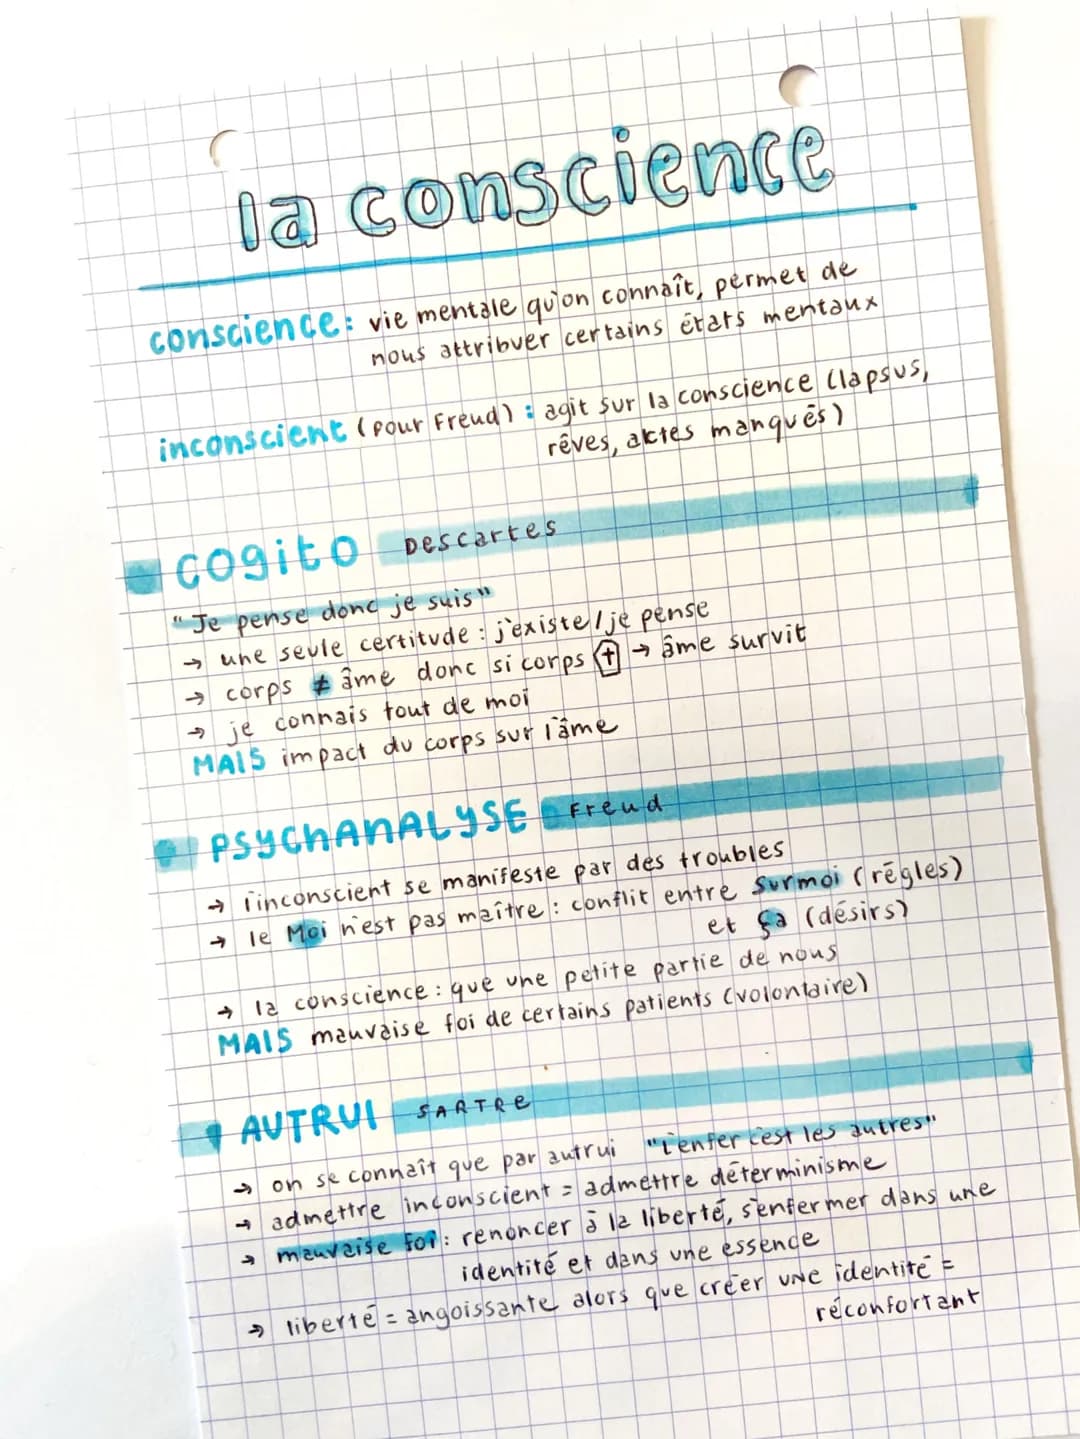 la conscience
conscience: vie mentale qu'on connaît, permet de
nous attribuer certains états mentaux
inconscient (pour Freud) : agit sur la conscience (lapsus,
rêves, actes manqués)
cogito Descartes
"Je pense donc je suis"
→ une seule certitude : j'existe / je pense
→ corps ≠ âme donc si corps ✝ → âme survit
→ je connais tout de moi
MAIS impact du corps sur l'âme
PSYCHANALYSE Freud
→ l'inconscient se manifeste par des troubles
→ le Moi n'est pas maître : conflit entre Surmoi (régles)
et ça (désirs)
→ la conscience : que une petite partie de nous
MAIS mauvaise foi de certains patients (volontaire)
AUTRUI SARTRE
→ on se connaît que par autrui "L'enfer c'est les autres"
→ admettre inconscient = admettre déterminisme
→ mauvaise foi : renoncer à la liberté, s'enfermer dans une
identité et dans une essence
→ liberté = angoissante alors que créer une identité =
réconfortant